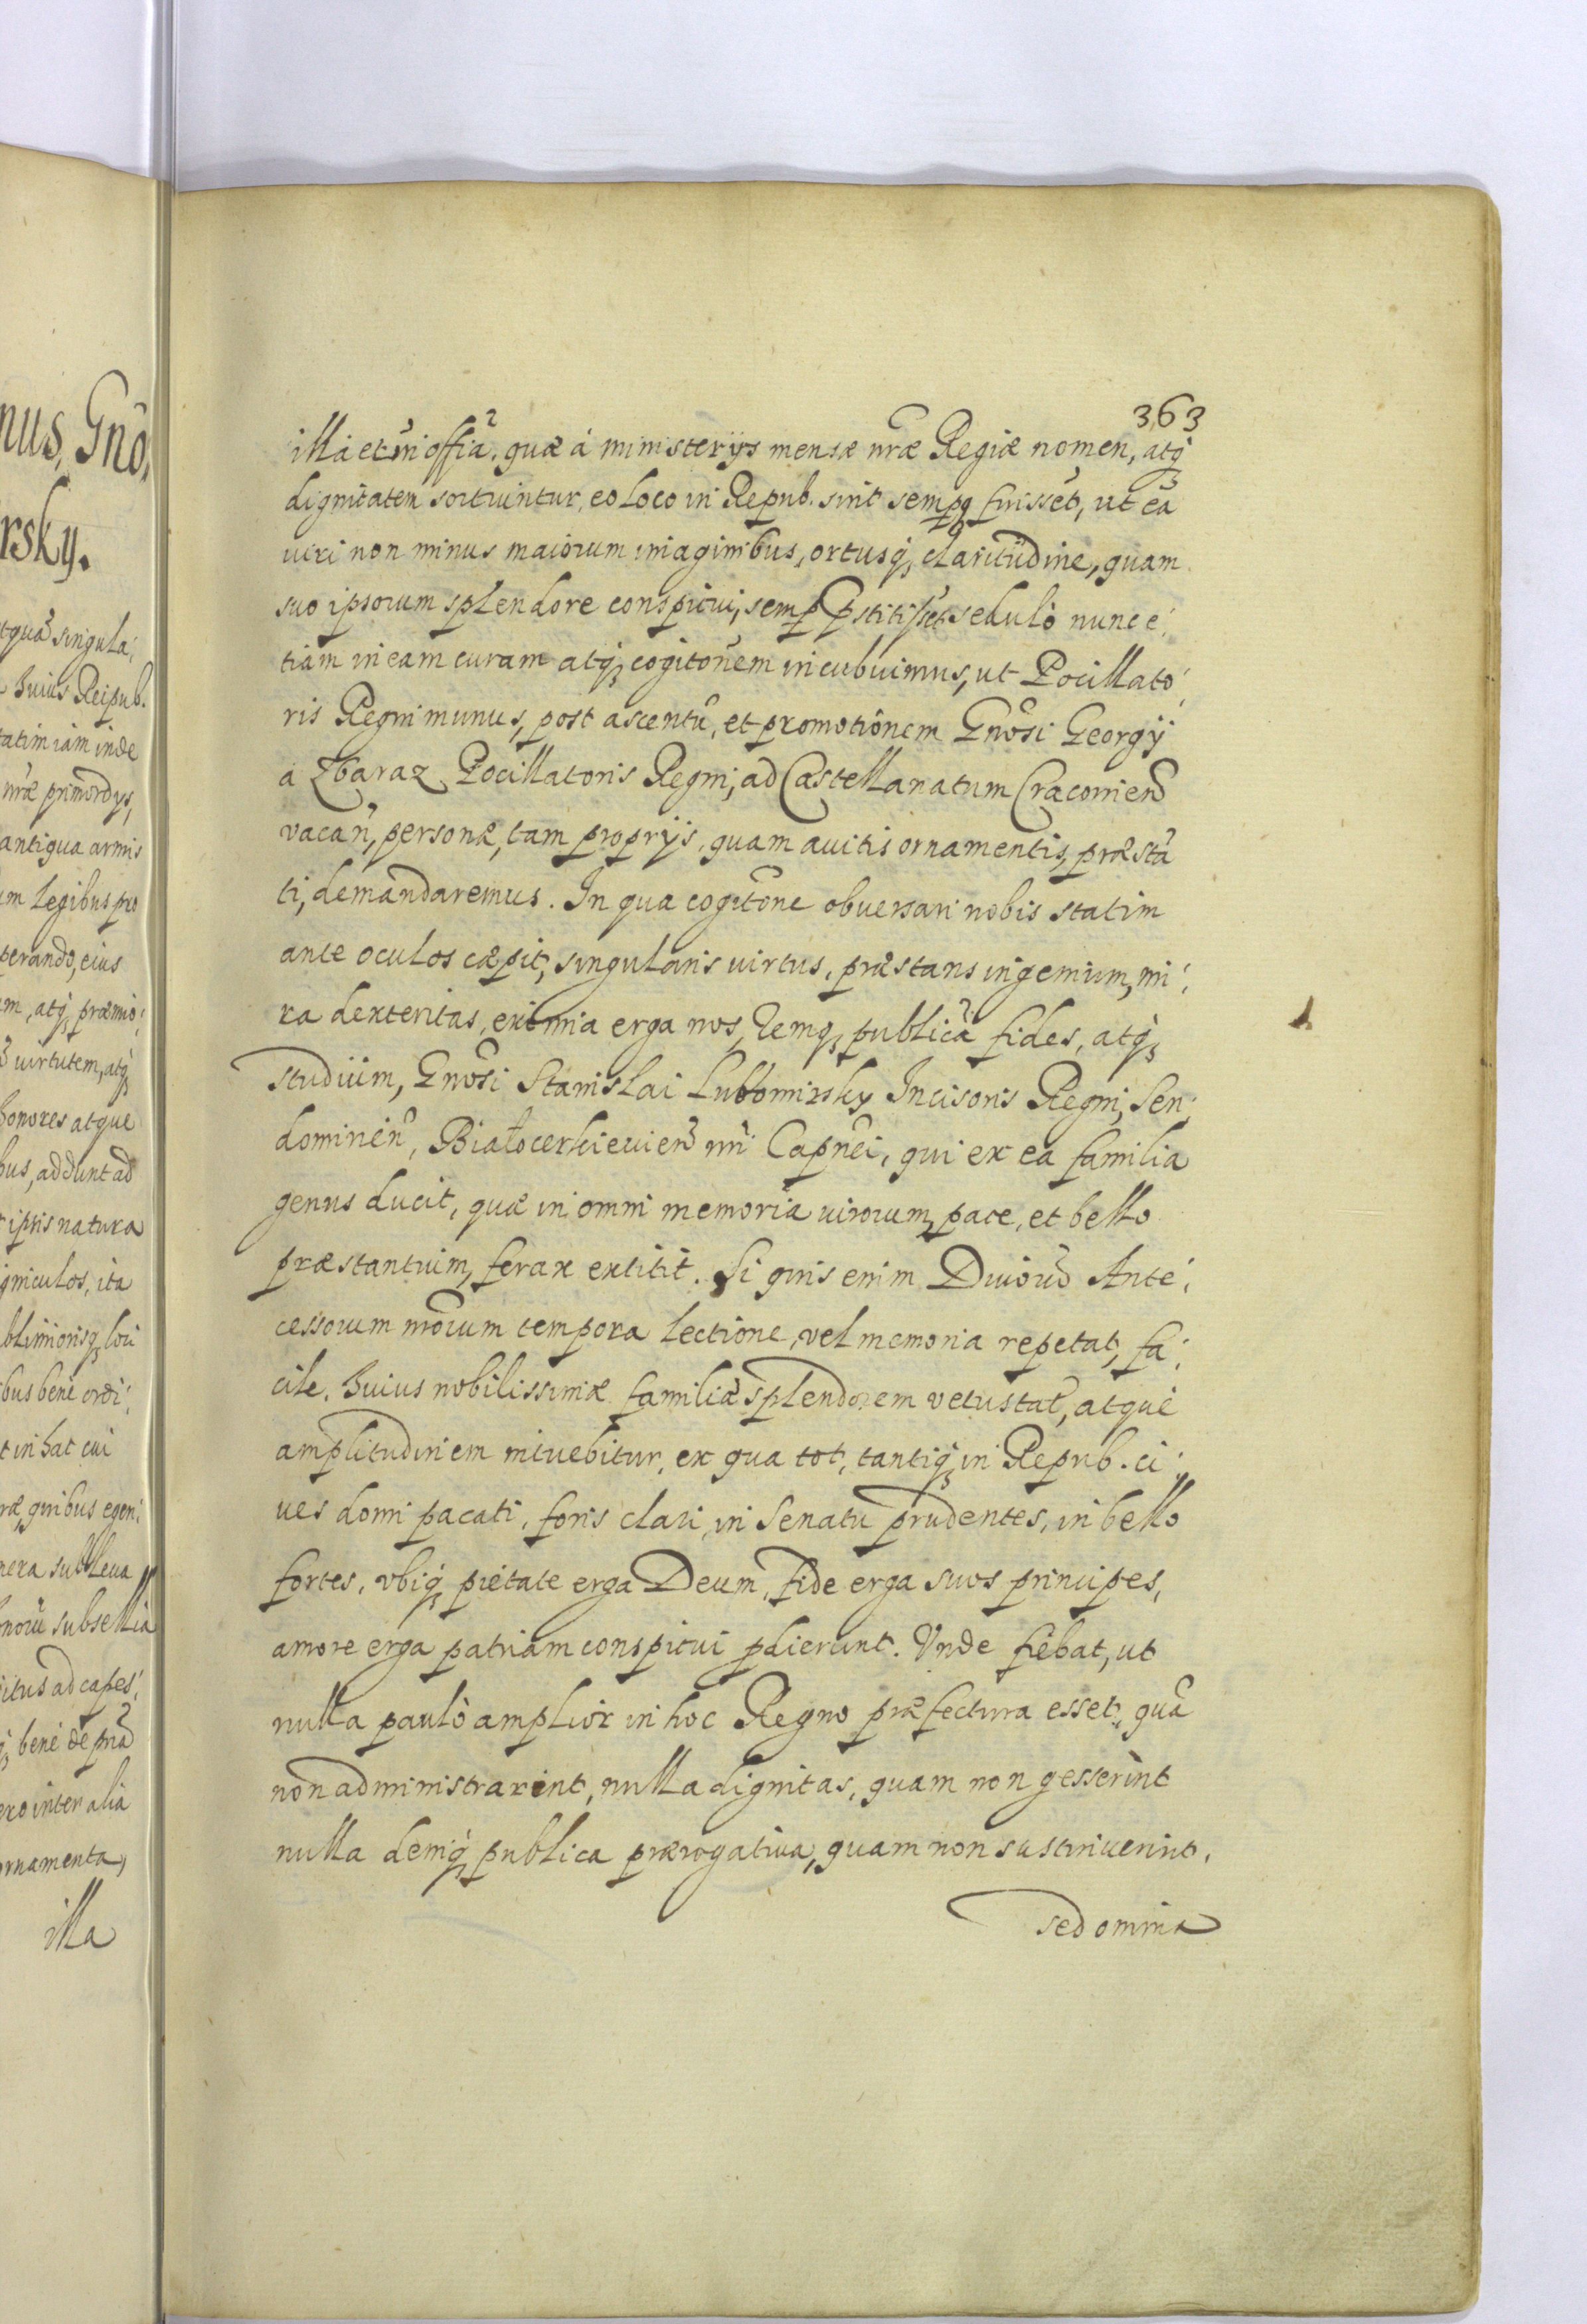 nus, Gnõ,
rsky.
tquã singula,
huius Reipub.
tatim iam inde
nr̃æ primordys,
antigua armis
um legibus pro
perando, eius
um, atq, præmio,
virtutem, atq
honores atque
bus, addunt ad
ipsis natura
igniculos, ita
blimiorisq, loci
bus bene ordi,
t in hat cui
ræ, quibus egen,
nera subleua
norũ subsellia
itus ad capes,
q, bene de pria
ero inter alia
ornamenta,
illa
363
illa etiñ offia, quæ á ministerijs mensæ nr̃æ Regiæ nomen, atq,
dignitatem sortiuintur, eo loco in Repub. sint semp, fuissẽt, ut eã
uiri non minus maiorum imaginibus, ortusq, claritudine, quam
suo ipsorum splendore conspicui, semp pstitissẽt sedulò nunc e,
tiam in eam curam atq, cogitõnem incubuimus, ut Pocillato,
ris Regni munus, post ascentũ, et promotiõnem Gnõsi Georgÿ
a Zbaraz Pocillatoris Regni, ad Castellanatum Cracouien̄
vacañ, personæ, tam proprijs, quam auitis ornamentis, præstã
ti, demandaremus. In qua cogitõne obuersari nobis statim
ante oculos cæpit, singularis uirtus, præstans ingenium, mi,
ra dexteritas, eximia erga nos, Remq, publicã fides, atq,
studium, Gnõsi Stanislai Lubomirsky Incisoris Regni, Sen,
domirieñ, Białocerkieuieñ nri Capnẽi, qui ex ea familia
genus ducit, quæ in omni memoria uirorum, pace, et bello
præstantium, ferax extitit. Si quis enim Diuorũ Ante,
cessorum nr̃orum tempora lectione, vel memoria repetat, fa,
cile, huius nobilissimæ familiæ splendorem vetustatẽ, atque
amplitudinem intuebitur, ex qua tot, tantiq, in Repub. ci,
ues domi pacati, foris clari, in Senatu prudentes, in bello
fortes, vbiq, pietate erga Deum, fide erga suos principes,
amore erga patriam conspicui pdierunt. Vnde fiebat, ut
nulla paulò amplior in hoc Regno præfectura esset, quã
non administrarint, nulla dignitas, quam non gesserint
nulla deniq, publica prærogatiua, quam non sustinuerint.
sed omnia